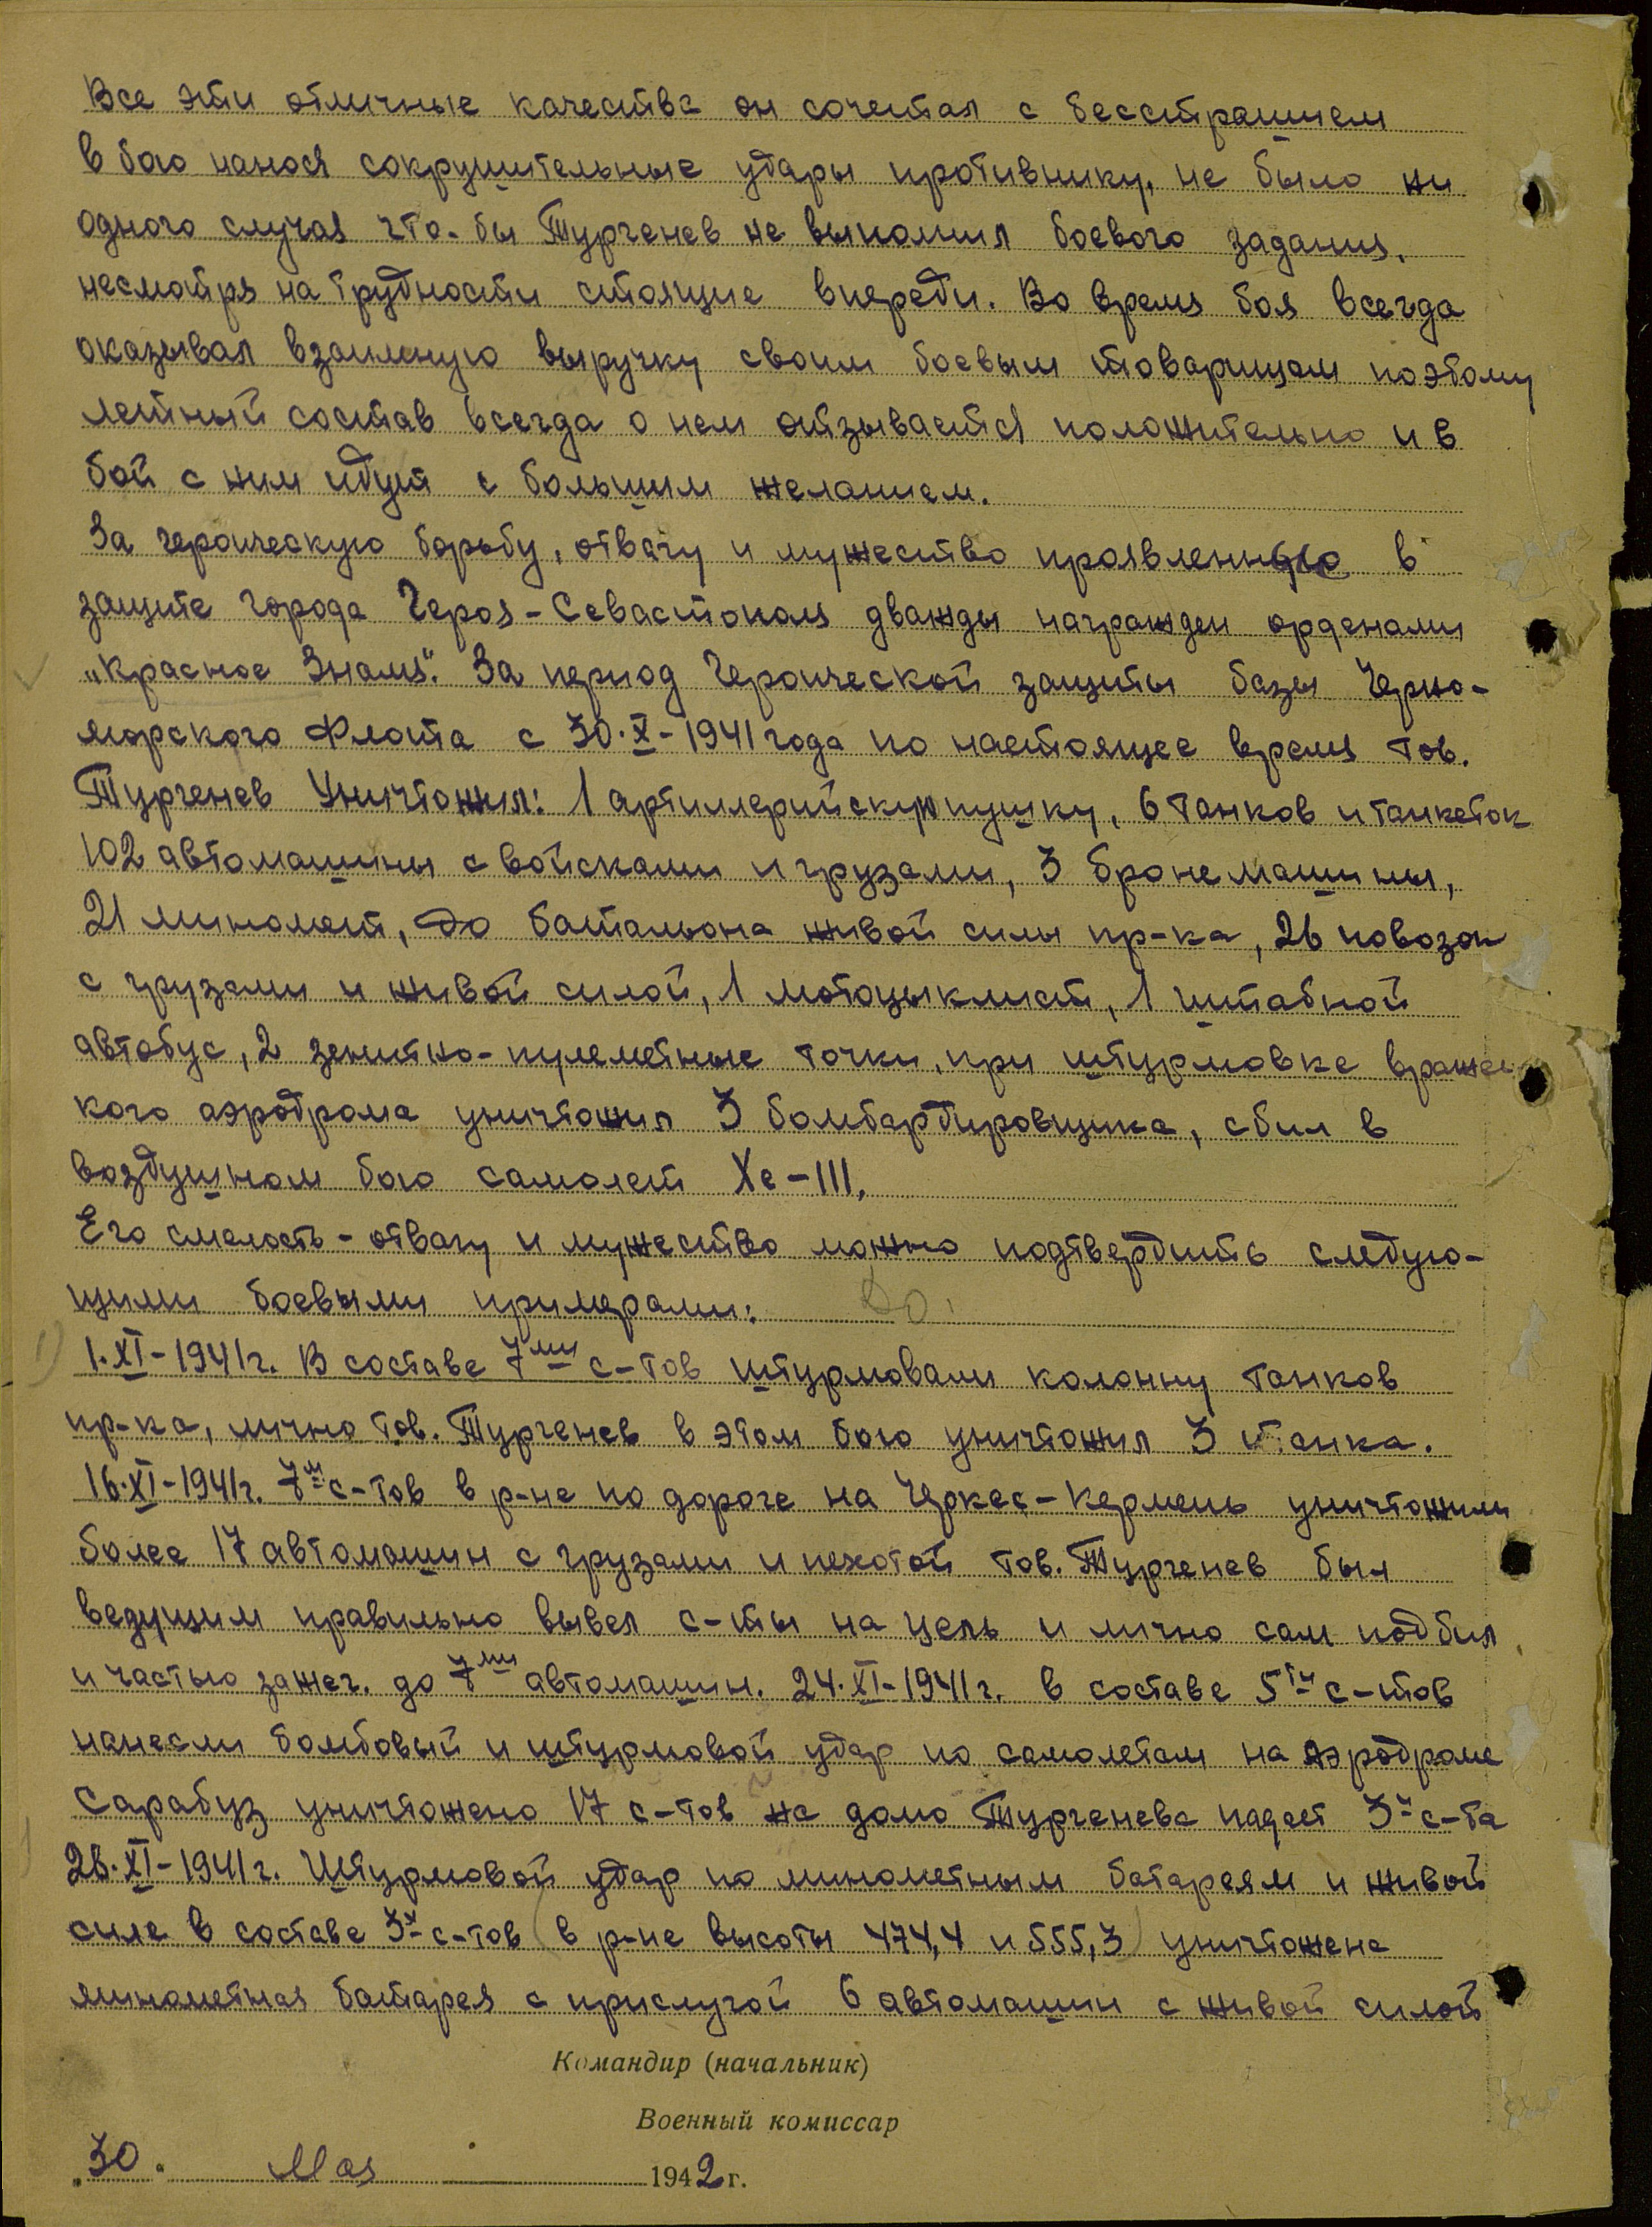 Все эти отличные качества он сочетал с бесстрашием
в бою нанося сокрушительные удары противнику, не было ни
одного случая что-бы Тургенев не выполнил боевого задания,
несмотря на трудности стоящие впереди. Во время боя всегда
оказывал взаимную выручку своим боевым товарищам поэтому
летный состав всегда о нем отзывается положительно и в
бой с ним идут с большим желанием.
За героическую борьбу, отвагу и мужество проявленную в
защите города Героя-Севастополя дважды награжден орденами
„Красное Знамя". За период Героической защиты базы Черно-
морского Флота с 30.X-1941 года по настоящее время тов.
Тургенев Уничтожил: 1 артилерийскую пушку, 6 танков и танкеток
102 автомашины с войсками и грузами, 3 бронемашины,
21 миномет, до батальона живой силы пр-ка, 26 повозок
с грузами и живой силой, 1 мотоцыклист, 1 штабной
автобус, 2 зенитно-пулеметные точки, при штурмовке вражес
кого аэродрома уничтожил 3 бомбардировщика, сбил в
воздушном бою самолет Хе-111,
Его смелость-отвагу и мужество можно подтвердить следую-
щими боевыми примерами:
1) 1.XI-1941г. В составе 7ми с-тов штурмовали колонну танков
пр-ка, лично тов. Тургенев в этом бою уничтожил 3 танка.
16.XI-1941г. 7м с-тов в р-не по дороге на Черкес-Кермень уничтожили
более 17 автомашин с грузами и пехотой тов. Тургенев был
ведущим правильно вывел с-ты на цель и лично сам подбил
и частью зажег. до 7ми автомашин. 24.XI-1941г. в составе 5ти с-тов
нанесли бомбовый и штурмовой удар по самолетам на аэродроме
Сарабуз уничтожено 17 с-тов на долю Тургенева падает 3и с-та
28.XI-1941г. Штурмовой удар по минометным батареям и живой
силе в составе 3х с-тов (в р-не высоты 474,4 и 555,3) уничтожена
минометная батарея с прислугой 6 автомашин с живой силой
Командир (начальник)
Военный комиссар
„30" Мая 1942 г.